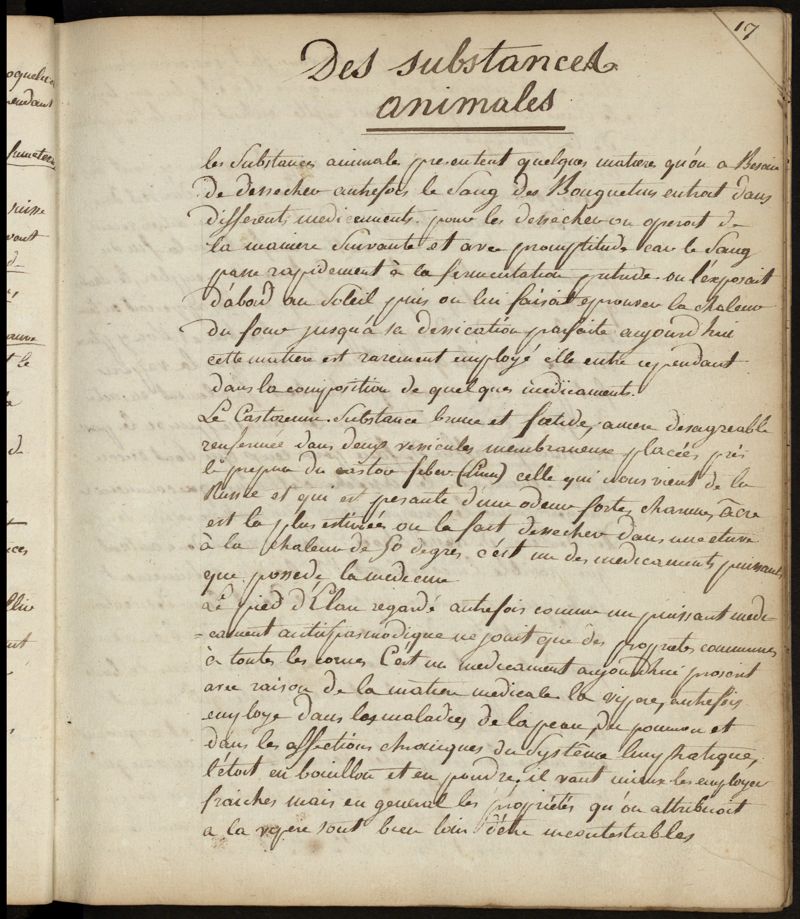 17
Des substances
animales
les Substances animale presentent quelques matiere qu'on a Besoin
de dessecher autrefois le Sang des Bouquetins entroit dans
differents medicaments. pour les dessecher on operoit de
la maniere Suivante et avec promptitude car le Sang
passe rapidement à la fermentation putride. on l'exposait
d'abord au Soleil puis on lui faisoit eprouver la chaleur
du four jusqu'à sa dessication parfaite aujourd'hui
cette matiere est rarement employé elle entre cependant
dans la composition de quelques medicaments.
Le Castoreum. Substance brune et fœtide, amere désagreable
renfermée dans deux vessicules membraneuse placées près
le prepuce du castor feber (Linn) celle qui nous vient de la
Russie et qui est pesante d'une odeur forte, charnue, âcre
est la plus estimée on la fait dessecher dans une etuve
à la chaleur de 50 degrés c'est un des medicaments puissants
que possede la medecine
Le pied d'Elan regardé autrefois comme un puissant medi-
-cament antispasmodique ne jouit que des propretés communes
à toutes les cornes C'est un medicament aujourd'hui proscrit
avec raison de la matiere medicale la vipere, autrefois
employe dans les maladies de la peau, du poumon et
dans les affections chroniques du Système lymphatique,
l'étoit en bouillon et en poudre, il vaut mieux les employer
fraiches mais en general les propriétés qu'on attribuoit
a la vipere sont bien loin d'être incontestables